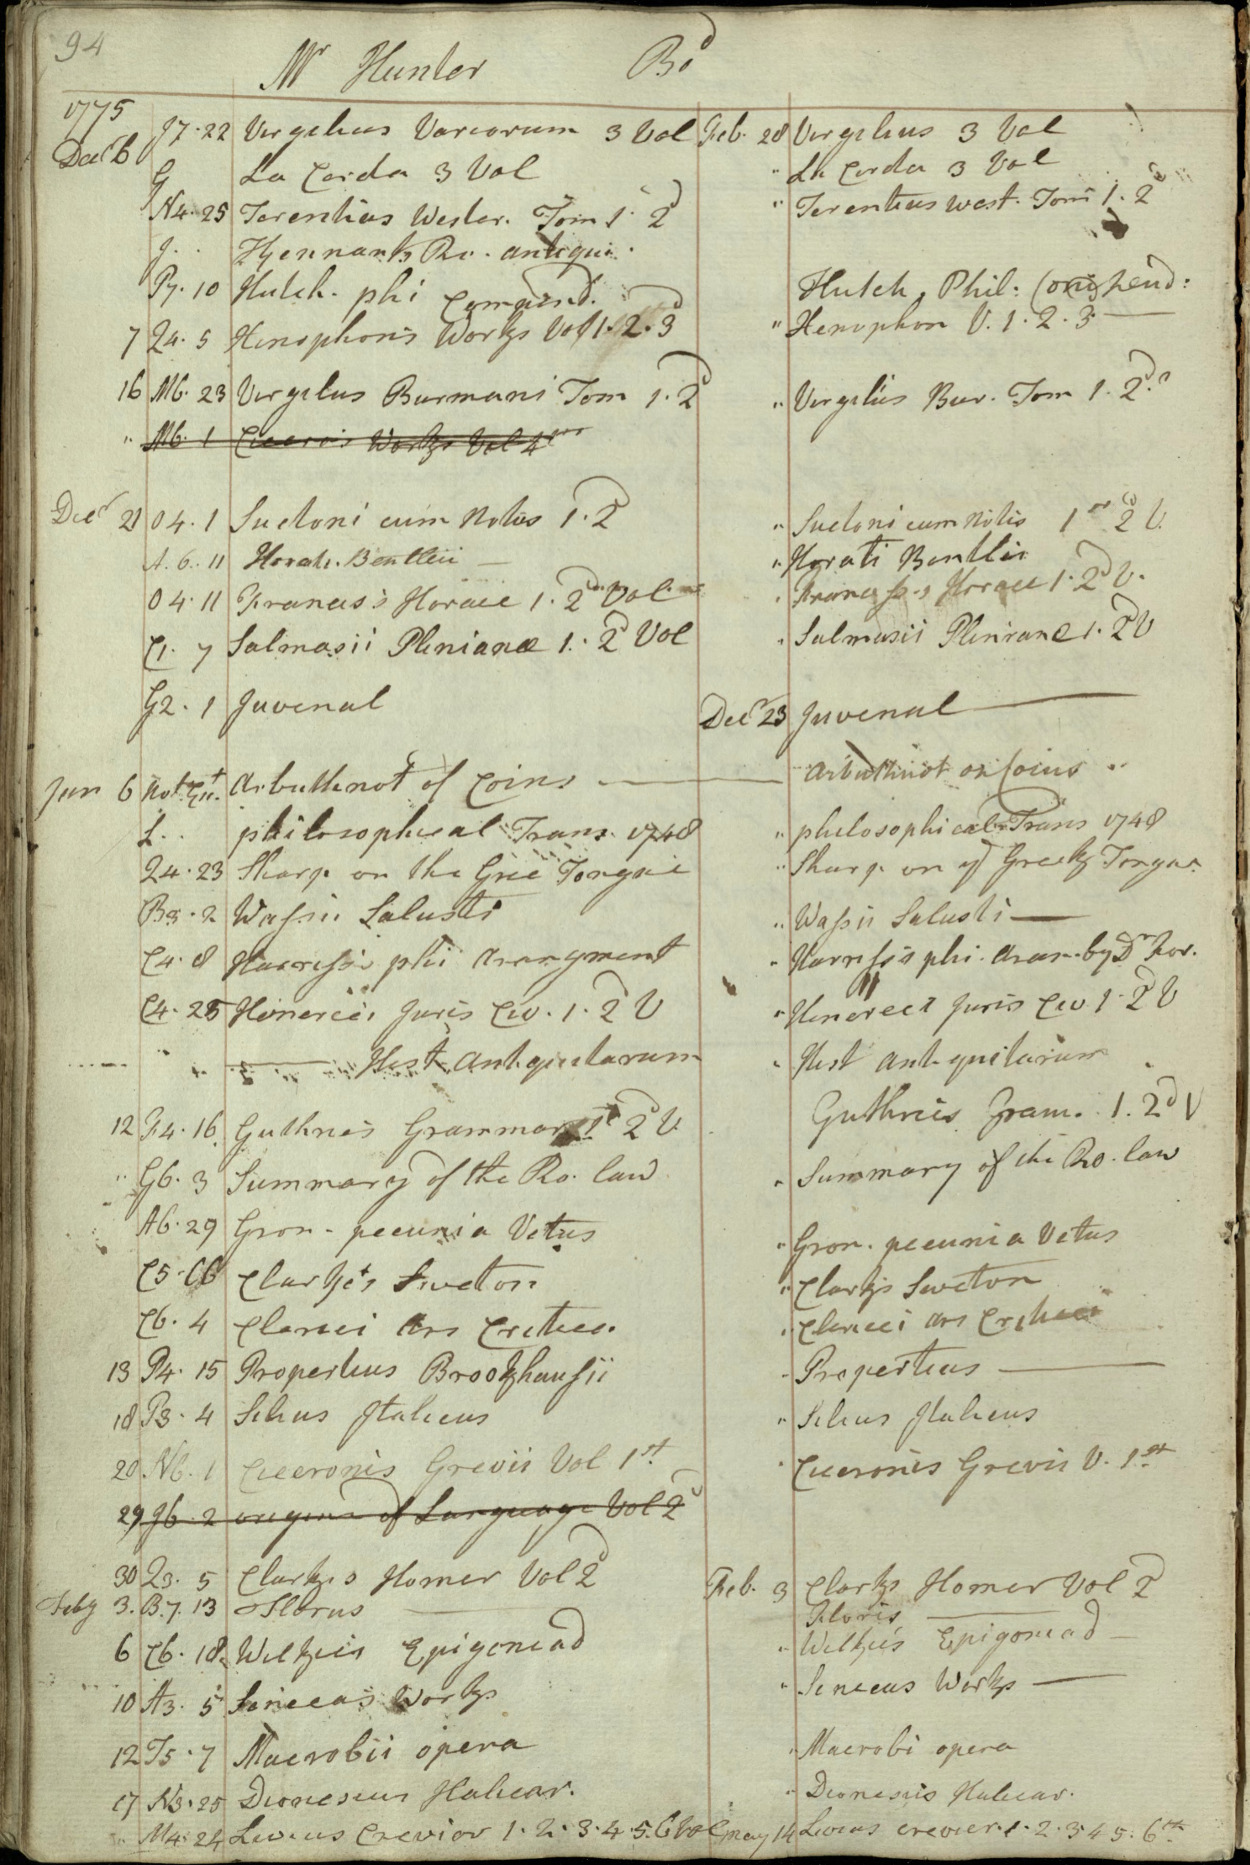 94
Mr Hunter Bd
1775
Decr 6 J7·22 Vergelius Variorum 3 Vol Feb. 28 Vergelius 3 Vol
G La Cerda 3 Vol " La Cerda 3 Vol
N4·25 Terentius Wester. Tom 1· 2d " Terentius West. Tom 1·2d
J·· Kennants Ro. antiqui.
P7·10 Hutch· phi Compend. Hutch. Phil: Compend:
7 Q4·5 Xenophons Works Vol 1·2·3d " Xenophon V. 1·2·3
16 M6·23 Vergelus Burmani Tom 1·2d " Vergelius Bur. Tom 1·2d
" M6·1 Cicero's Works Vol 4
Decr 21 O4·1 Suetoni cum Notis 1·2d " Suetoni cum Notis 1st 2d V.
A.6.11 Horati. Bentleii — " Horati Bentlii
O4·11 Francis's Horace 1·2d Vol " Francis's Horace 1·2d V.
C1·7 Salmasii Plinianæ 1·2d Vol " Salmasii Plinianæ 1·2d V
G2·1 Juvenal Decr 23 Juvenal
Jan 6 Not Ent. Arbuthnot of Coins Arbuthnot on Coins "
L·· philosophical Trans. 1748 " philosophical Trans 1748
Q4·23 Sharp on the Gree Tongue " Sharp on ye Greek Tongue
B3·2 Wassii Salusti " Wassii Salusti
C4·8 Harriss's phi Arangment " Harriss's phi. Aran. by Dr Hor.
C4·25 Heinereii Juris Civ. 1·2d V " Henereci Juris Civ 1·2d V
" — Hist Antiquitarum " Hist antiquitarum
12 F4·16 Guthries Grammar 1st 2d V. Guthries Gram. 1.2d V
" G6·3 Summary of the Ro. law " Summary of the Ro. law
A6·29 Gron· pecunia Vetus " Gron. pecunia Vetus
C5·16 Clarke's Sueton " Clarks Sueton
C6·4 Clerici Ars Critica. " Clerici Ars Critica
13 P4·15 Propertius Brookhausii " Propertius
18 P3·4 Silius Italicus " Silius Italicus
20 N6·1 Ciceronis Grevii Vol 1st " Ciceronis Grevii V. 1st
29 J6·2 origin of Language Vol 2d
30 Q3·5 Clarks Homer Vol 2d Feb. 3 Clarks Homer Vol 2d
Feby 3. B.7.13 Florus Floris
6 C6·18 Wilkies Epigoniad " Wilkies Epigoniad
10 A3·5 Senecas Works " Senecas Works
12 T5·7 Macrobii opera " Macrobi opera
17 N3·25 Dionesius Halicar. " Dionesius Halicar.
" M4·24 Livius Crevier 1·2·3·4·5·6 Vol May 14 Livius crevier 1·2·3 4 5·6th